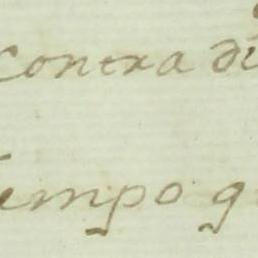 contra di
empo q